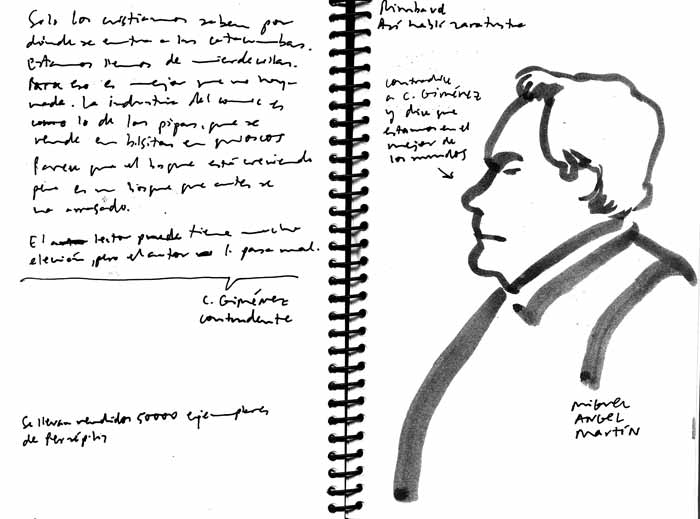 Solo los cristianos saben por
dónde se entra a las catacumbas.
Estamos llenos de mierdecillas.
Para eso es mejor que no haya
nada. La industria del comic es
como la de las pipas, que se
vende en bolsitas en quioscos
Parece que el bosque está creciendo
pero es un bosque que antes se
ha arrasado.
El lector puede tiene mucha
elección, pero el autor lo pasa mal.
C. Giménez
contundente
Se llevan vendidos 50000 ejemplares
de Persépolis
Rimbaud
Así habló zaratustra
contradice
a C. Giménez
y dice que
estamos en el
mejor de
los mundos
Miguel
Angel
Martín